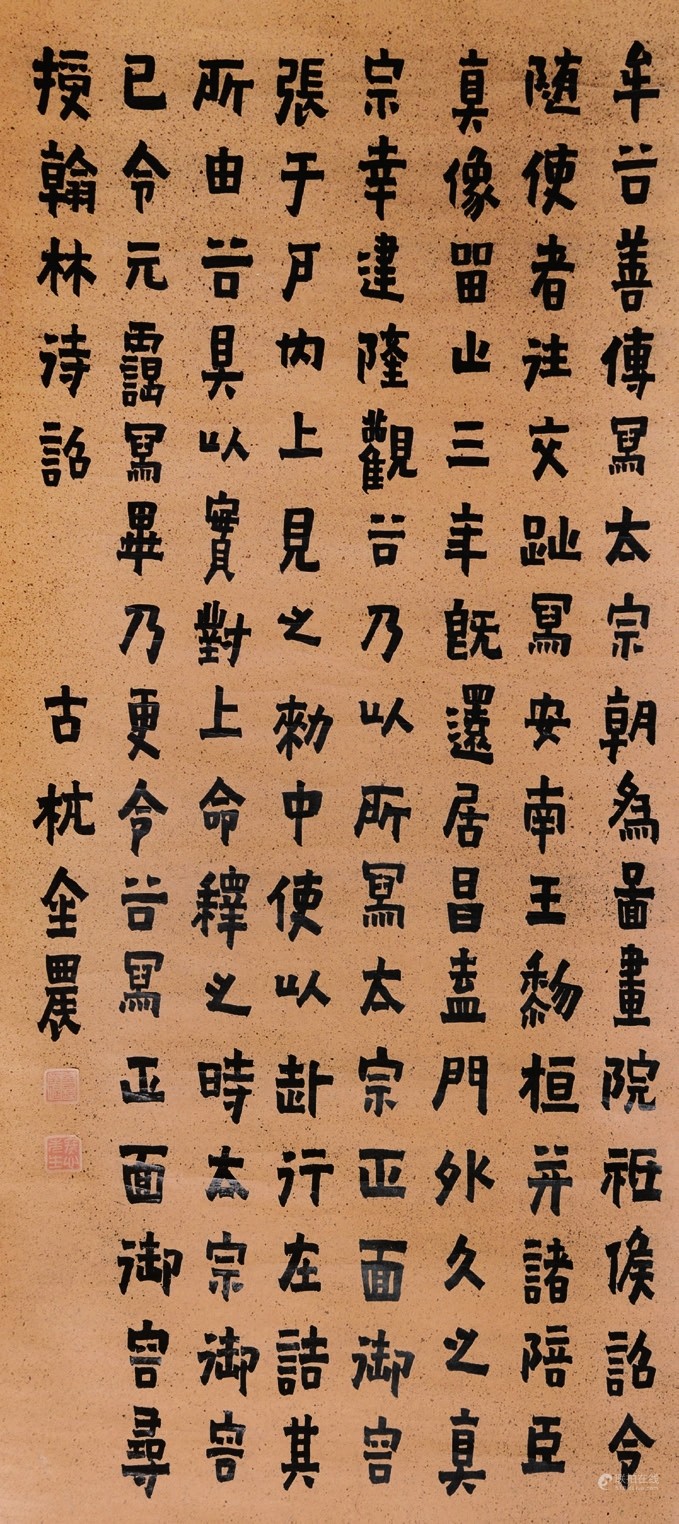 牟谷善傳冩太宗朝為啚畫院祗候詔令
随使者往交趾冩安南王黎桓并諸陪臣
真像留止三年既還居昌盍門外久之真
宗幸建隆觀谷乃以所冩太宗正面御容
張于戶內上見之勑中使以赴行在詰其
所由谷具以實對上命釋之時太宗御容
已令元靄冩畢乃更令谷冩正面御容尋
授翰林待詔 古杭金農
联拍在线